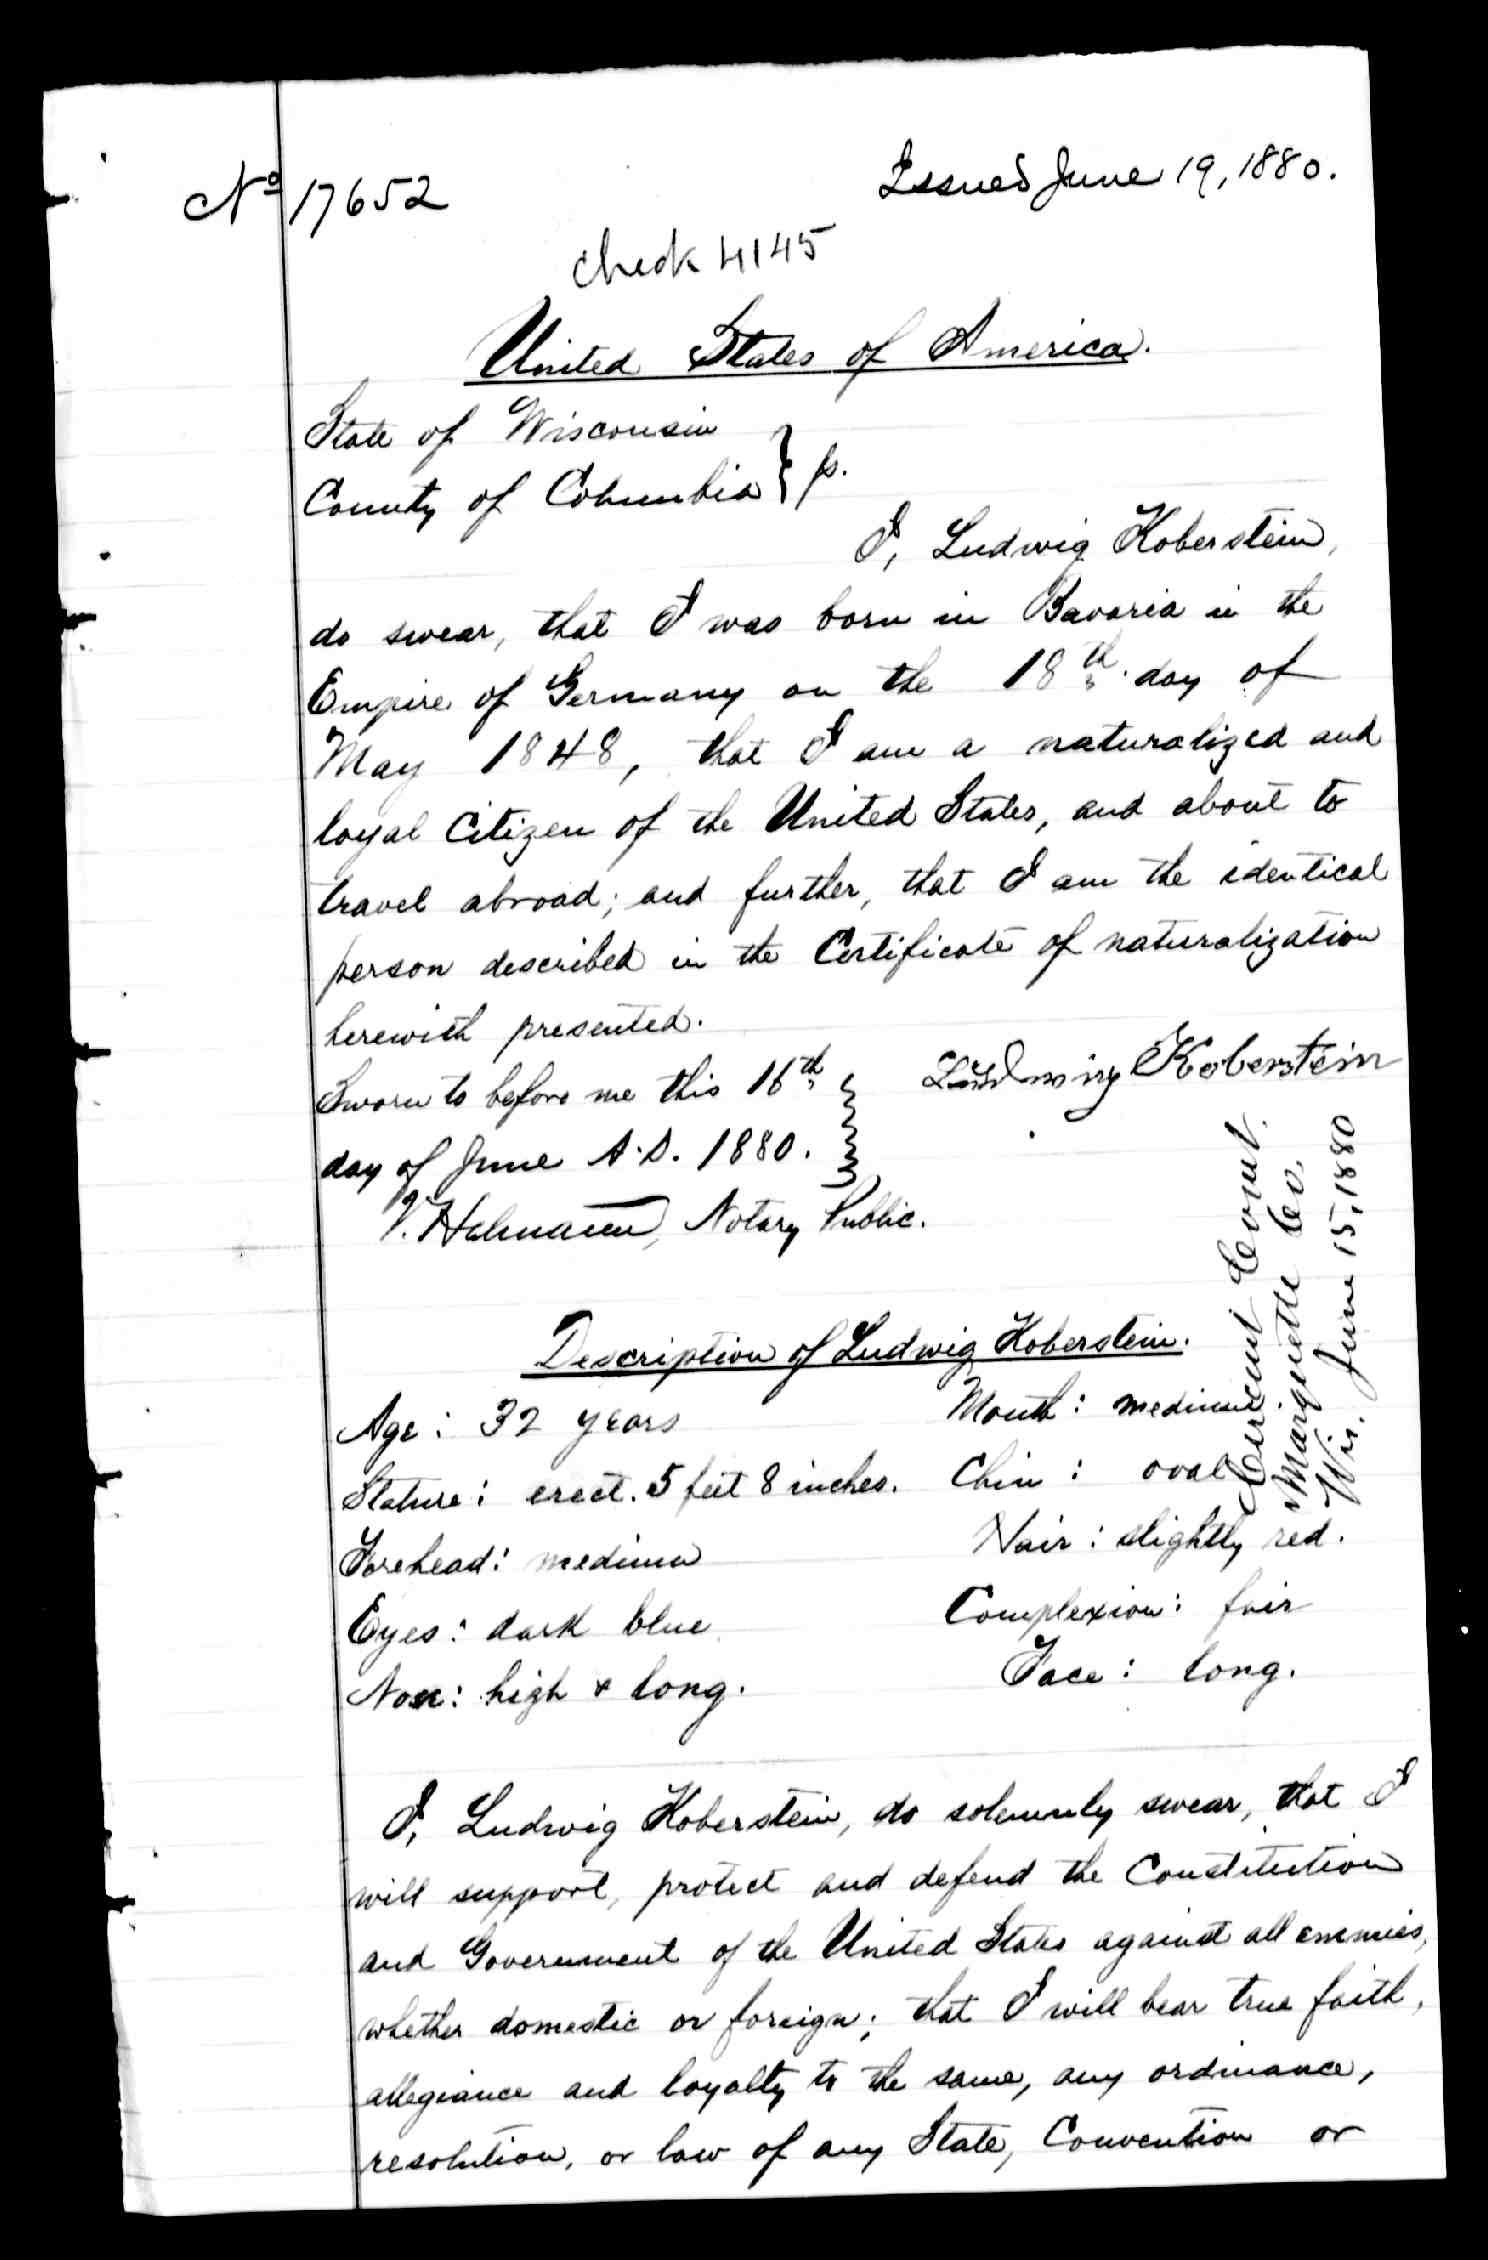 No 17652
Issued June 19, 1880.
Check 4145
United States of America.
State of Wisconsin
County of Columbia } ss.
I, Ludwig Koberstein,
do swear, that I was born in Bavaria in the
Empire of Germany on the 18th day of
May 1848, that I am a naturalized and
loyal Citizen of the United States, and about to
travel abroad; and further, that I am the identical
person described in the Certificate of naturalization
herewith presented.
Ludwig Koberstein
Sworn to before me this 16th
day of June A.D. 1880.
Notary Public.
Circuit Court.
Marquette Co.
Wis. June 15, 1880
Description of Ludwig Koberstein.
Age: 32 years
Mouth: medium.
Stature: erect. 5 feet 8 inches.
Chin: oval
Forehead: medium
Hair: slightly red.
Eyes: dark blue
Complexion: fair
Nose: high & long.
Face: long.
I, Ludwig Koberstein, do solemnly swear, that I
will support, protect and defend the Constitution
and Government of the United States against all enemies,
whether domestic or foreign; that I will bear true faith,
allegiance and loyalty to the same, any ordinance,
resolution, or law of any State, Convention or